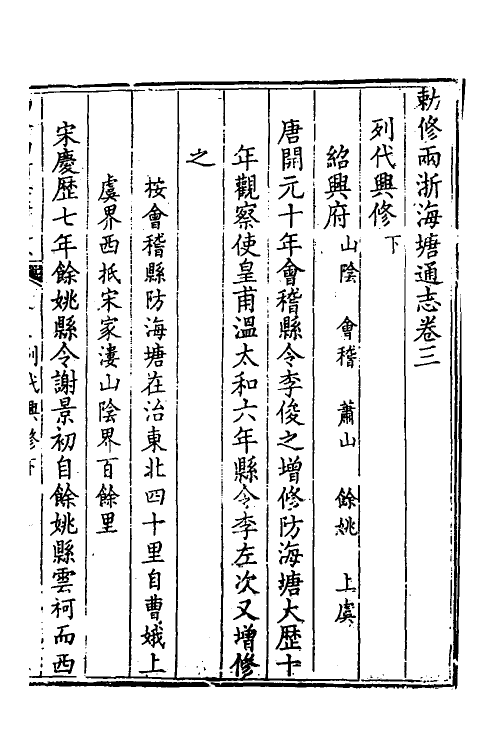 勅修兩浙海塘通志卷三
列代興修下
紹興府山陰 會稽 蕭山 餘姚 上虞
唐開元十年會稽縣令李俊之增修防海塘大歷十
年觀察使皇甫溫太和六年縣令李左次又增修
之
按會稽縣防海塘在治東北四十里自曹娥上
虞界西抵宋家漊山陰界百餘里
宋慶歷七年餘姚縣令謝景初自餘姚縣雲柯而西
列代興修下